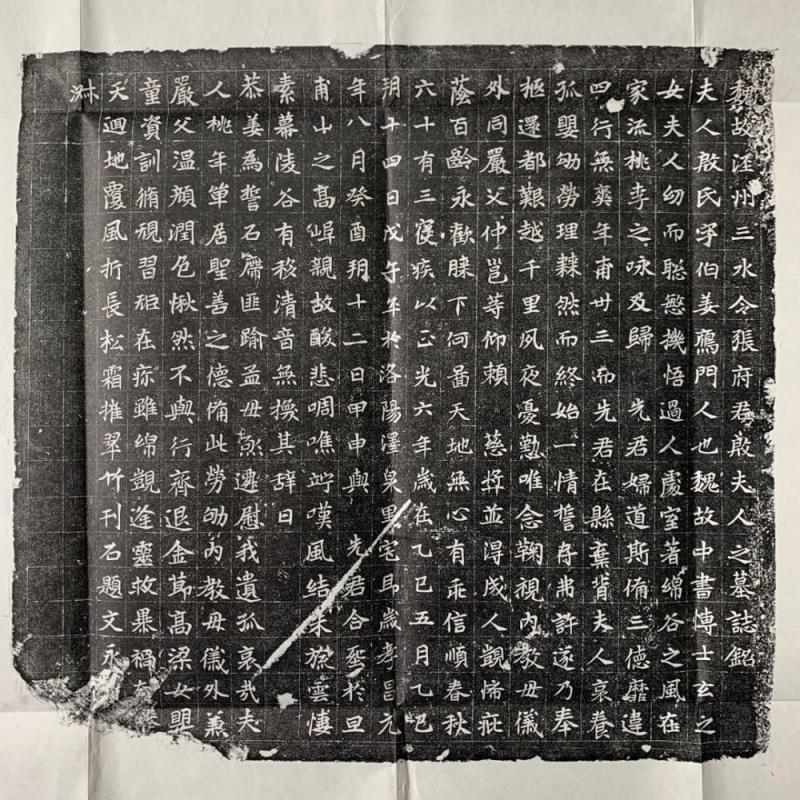 魏故涇州三水令張府君殷夫人之墓誌銘
夫人殷氏字伯姜鴈門人也魏故中書博士玄之
女夫人幼而聡慜機悟過人處室著綿谷之風在
家流桃李之咏及歸 先君婦道斯俻三德靡違
四行無爽年甫卅三而先君在縣棄背夫人哀養
孤嬰劬勞理棘然而終始一情誓存弗許遂乃奉
柩還都艱越千里夙夜憂懃唯念鞠視內教毋儀
外同嚴父仲邕等仰賴 慈奬並得成人覬怙疪
蔭百齡永歡膝下何啚天地無心有乖信順春秋
六十有三寑疾以正光六年歲在乙巳五月乙巳
朔十四日戊午卒於洛陽澤泉里宅耳歲孝昌元
年八月癸酉朔十二日甲申與 先君合塟於旦
甫山之髙埠親故酸悲啁噍踟嘆風結朱旐雲悽
素幕陵谷有移清音無換其辞曰
恭姜爲誓石席匪踰益毋㷼遷慰我遺孤哀㦲夫
人桃年單居聖善之德俻此勞劬內教毋儀外兼
嚴父溫顔潤色愀然不與行齊退金萴髙梁女嬰
童資訓脩規習矩在疹雖绵覬逢靈救暴禍
天迴地覆風折長松霜摧翠竹刊石題文永
沝